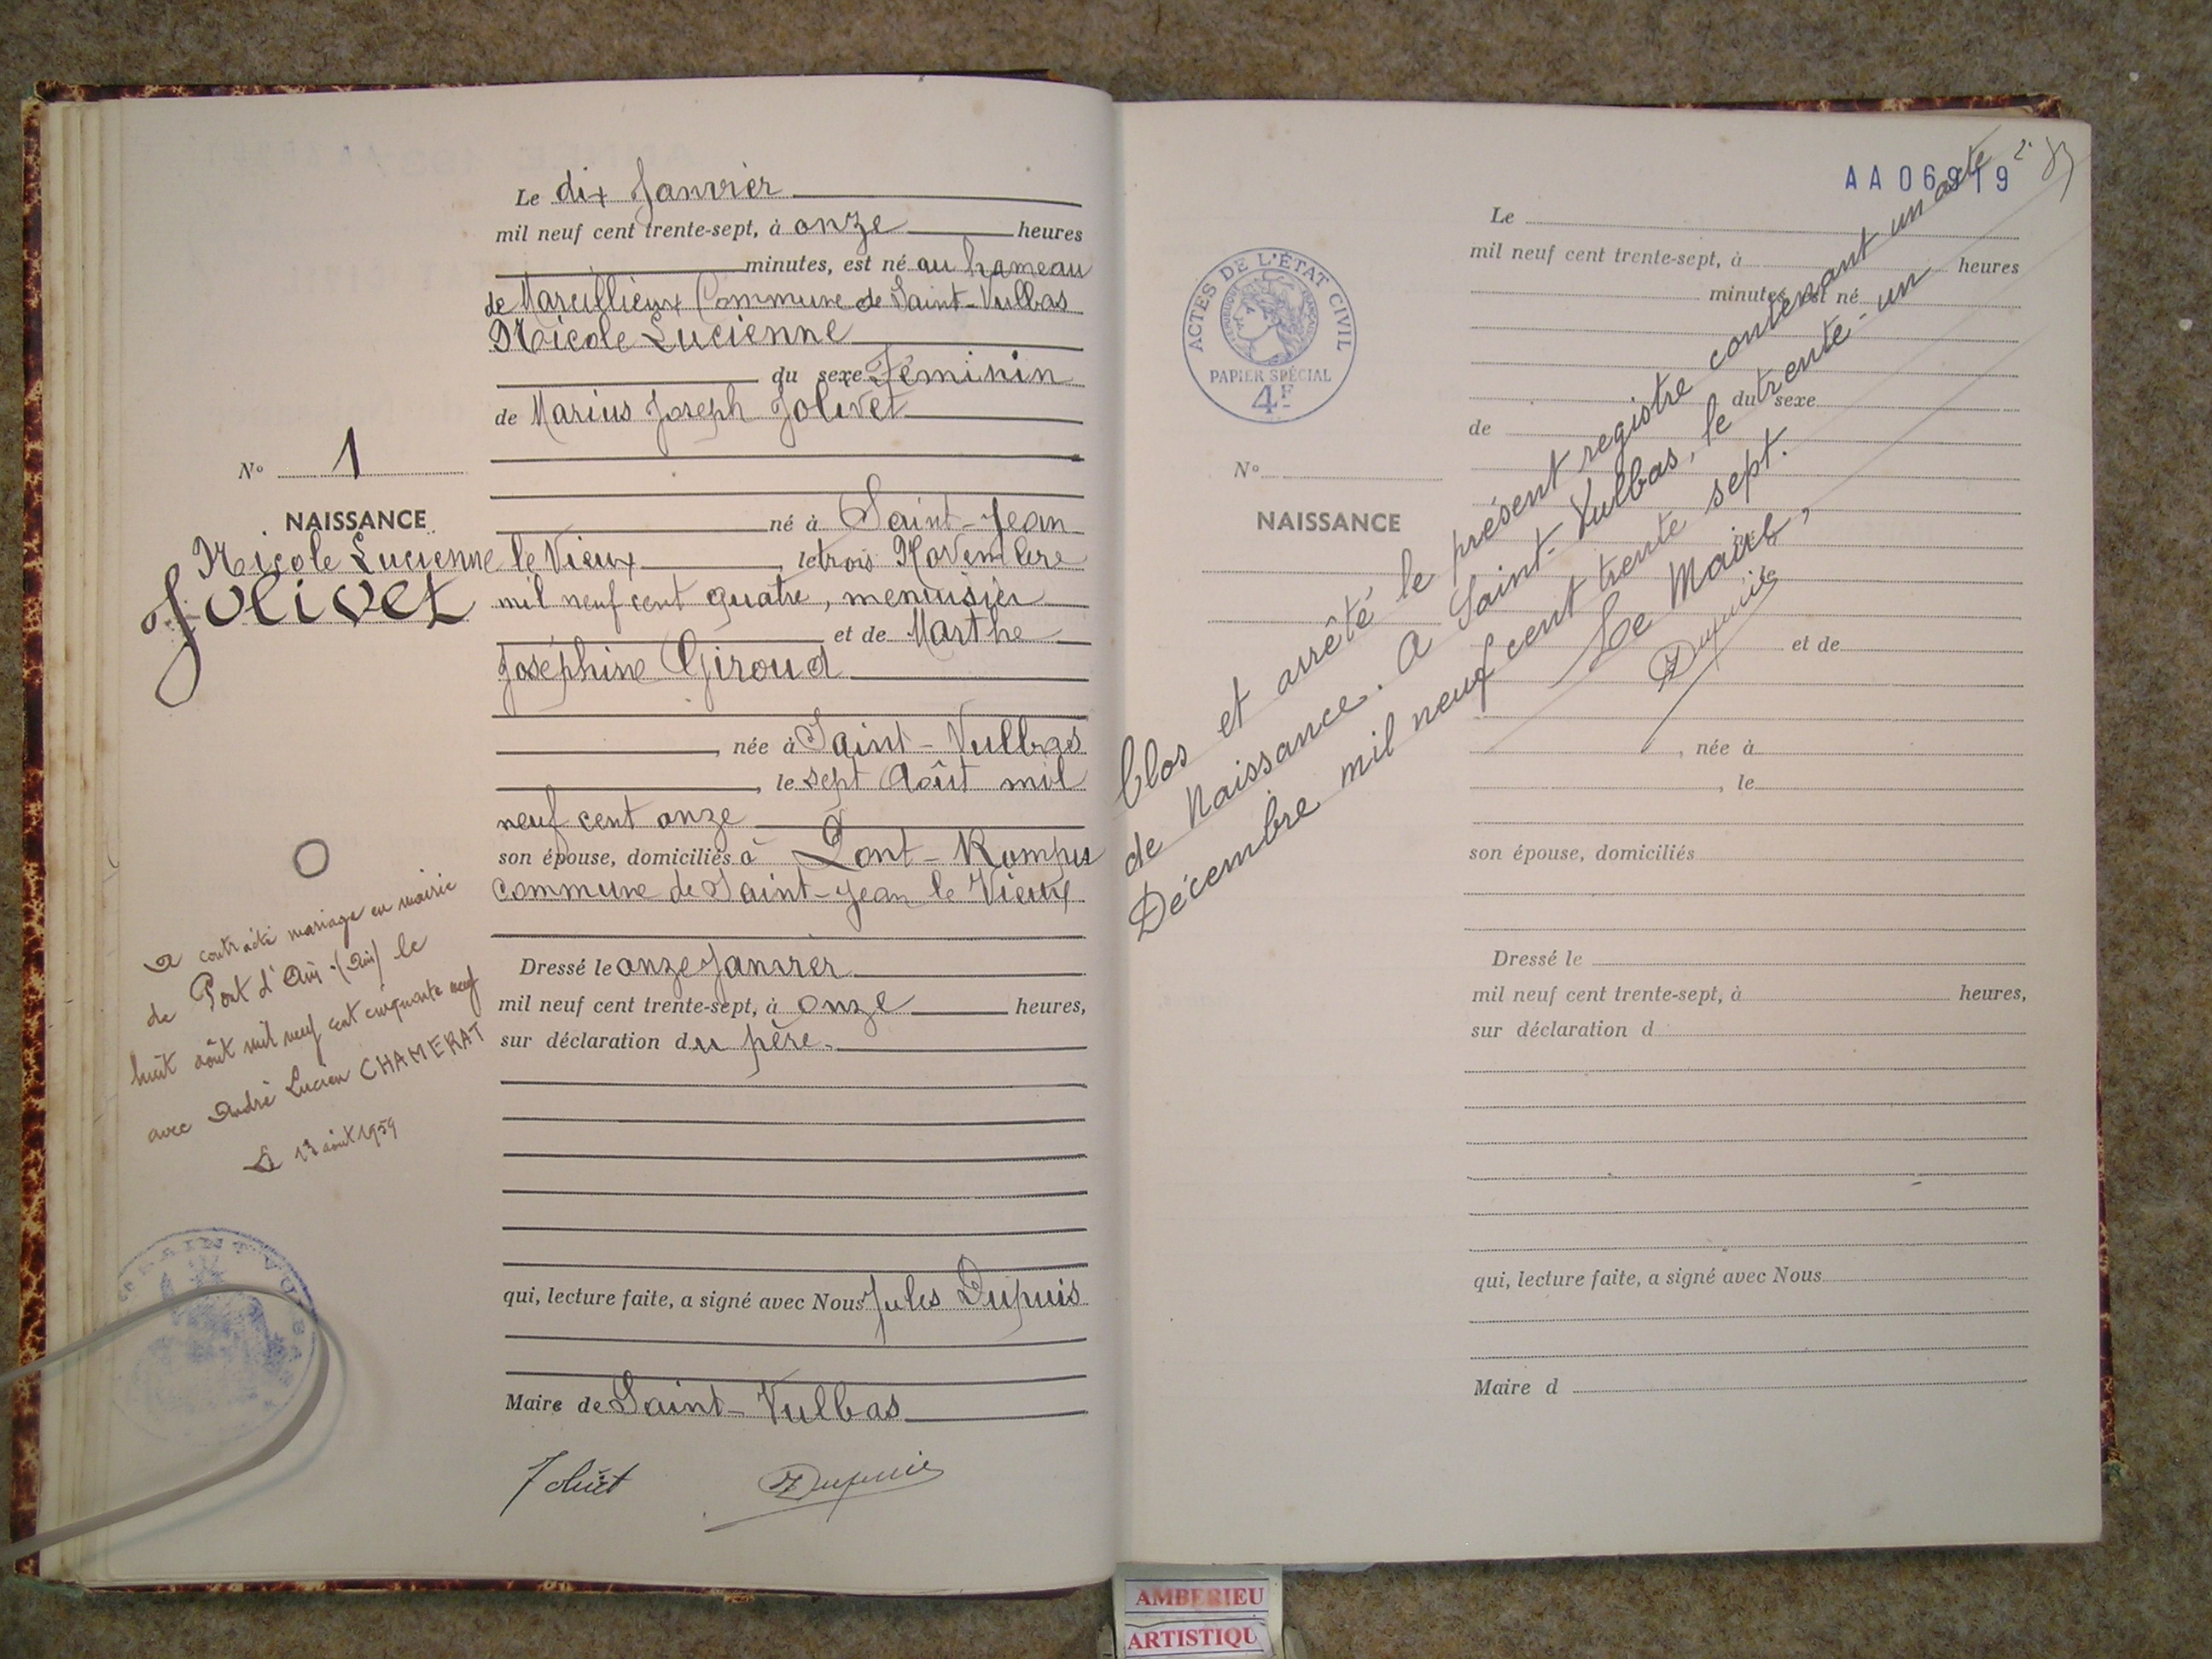 Le dix Janvier
mil neuf cent trente-sept, à onze heures
minutes, est né au hameau
de Marcillieux Commune de Saint-Vulbas
Nicole Lucienne
du sexe Féminin
de Marius Joseph Jolivet
N° 1
né à Saint-Jean
NAISSANCE
Nicole Lucienne
Jolivet
le Vieux, le trois Novembre
mil neuf cent quatre, menuisier
et de Marthe
Joséphine Giroud
, née à Saint-Vulbas
, le sept Août mil
neuf cent onze
son épouse, domiciliés à Pont-Rompu
commune de Saint-Jean le Vieux
Dressé le onze Janvier
mil neuf cent trente-sept, à onze heures,
sur déclaration du père.
a contracté mariage en mairie
de Pont d'Ain (Ain) le
huit août mil neuf cent cinquante neuf
avec André Lucien CHAMERAT
Le 13 août 1959
qui, lecture faite, a signé avec Nous Jules Dupuis
Maire de Saint-Vulbas
SAINT VULBAS
Jolivet
Dupuis
AA06919
Le
mil neuf cent trente-sept, à heures
minutes, est né
ACTES DE L'ÉTAT CIVIL
RÉPUBLIQUE FRANÇAISE
PAPIER SPÉCIAL
4F
du sexe
de
N°
NAISSANCE
et de
, née à
, le
son épouse, domiciliés
Dressé le
mil neuf cent trente-sept, à heures,
sur déclaration d
qui, lecture faite, a signé avec Nous
Maire d
Clos et arrêté le présent registre contenant un acte
de Naissance. A Saint-Vulbas, le trente-un
Décembre mil neuf cent trente sept.
Le Maire,
Dupuis
AMBERIEU
ARTISTIQU